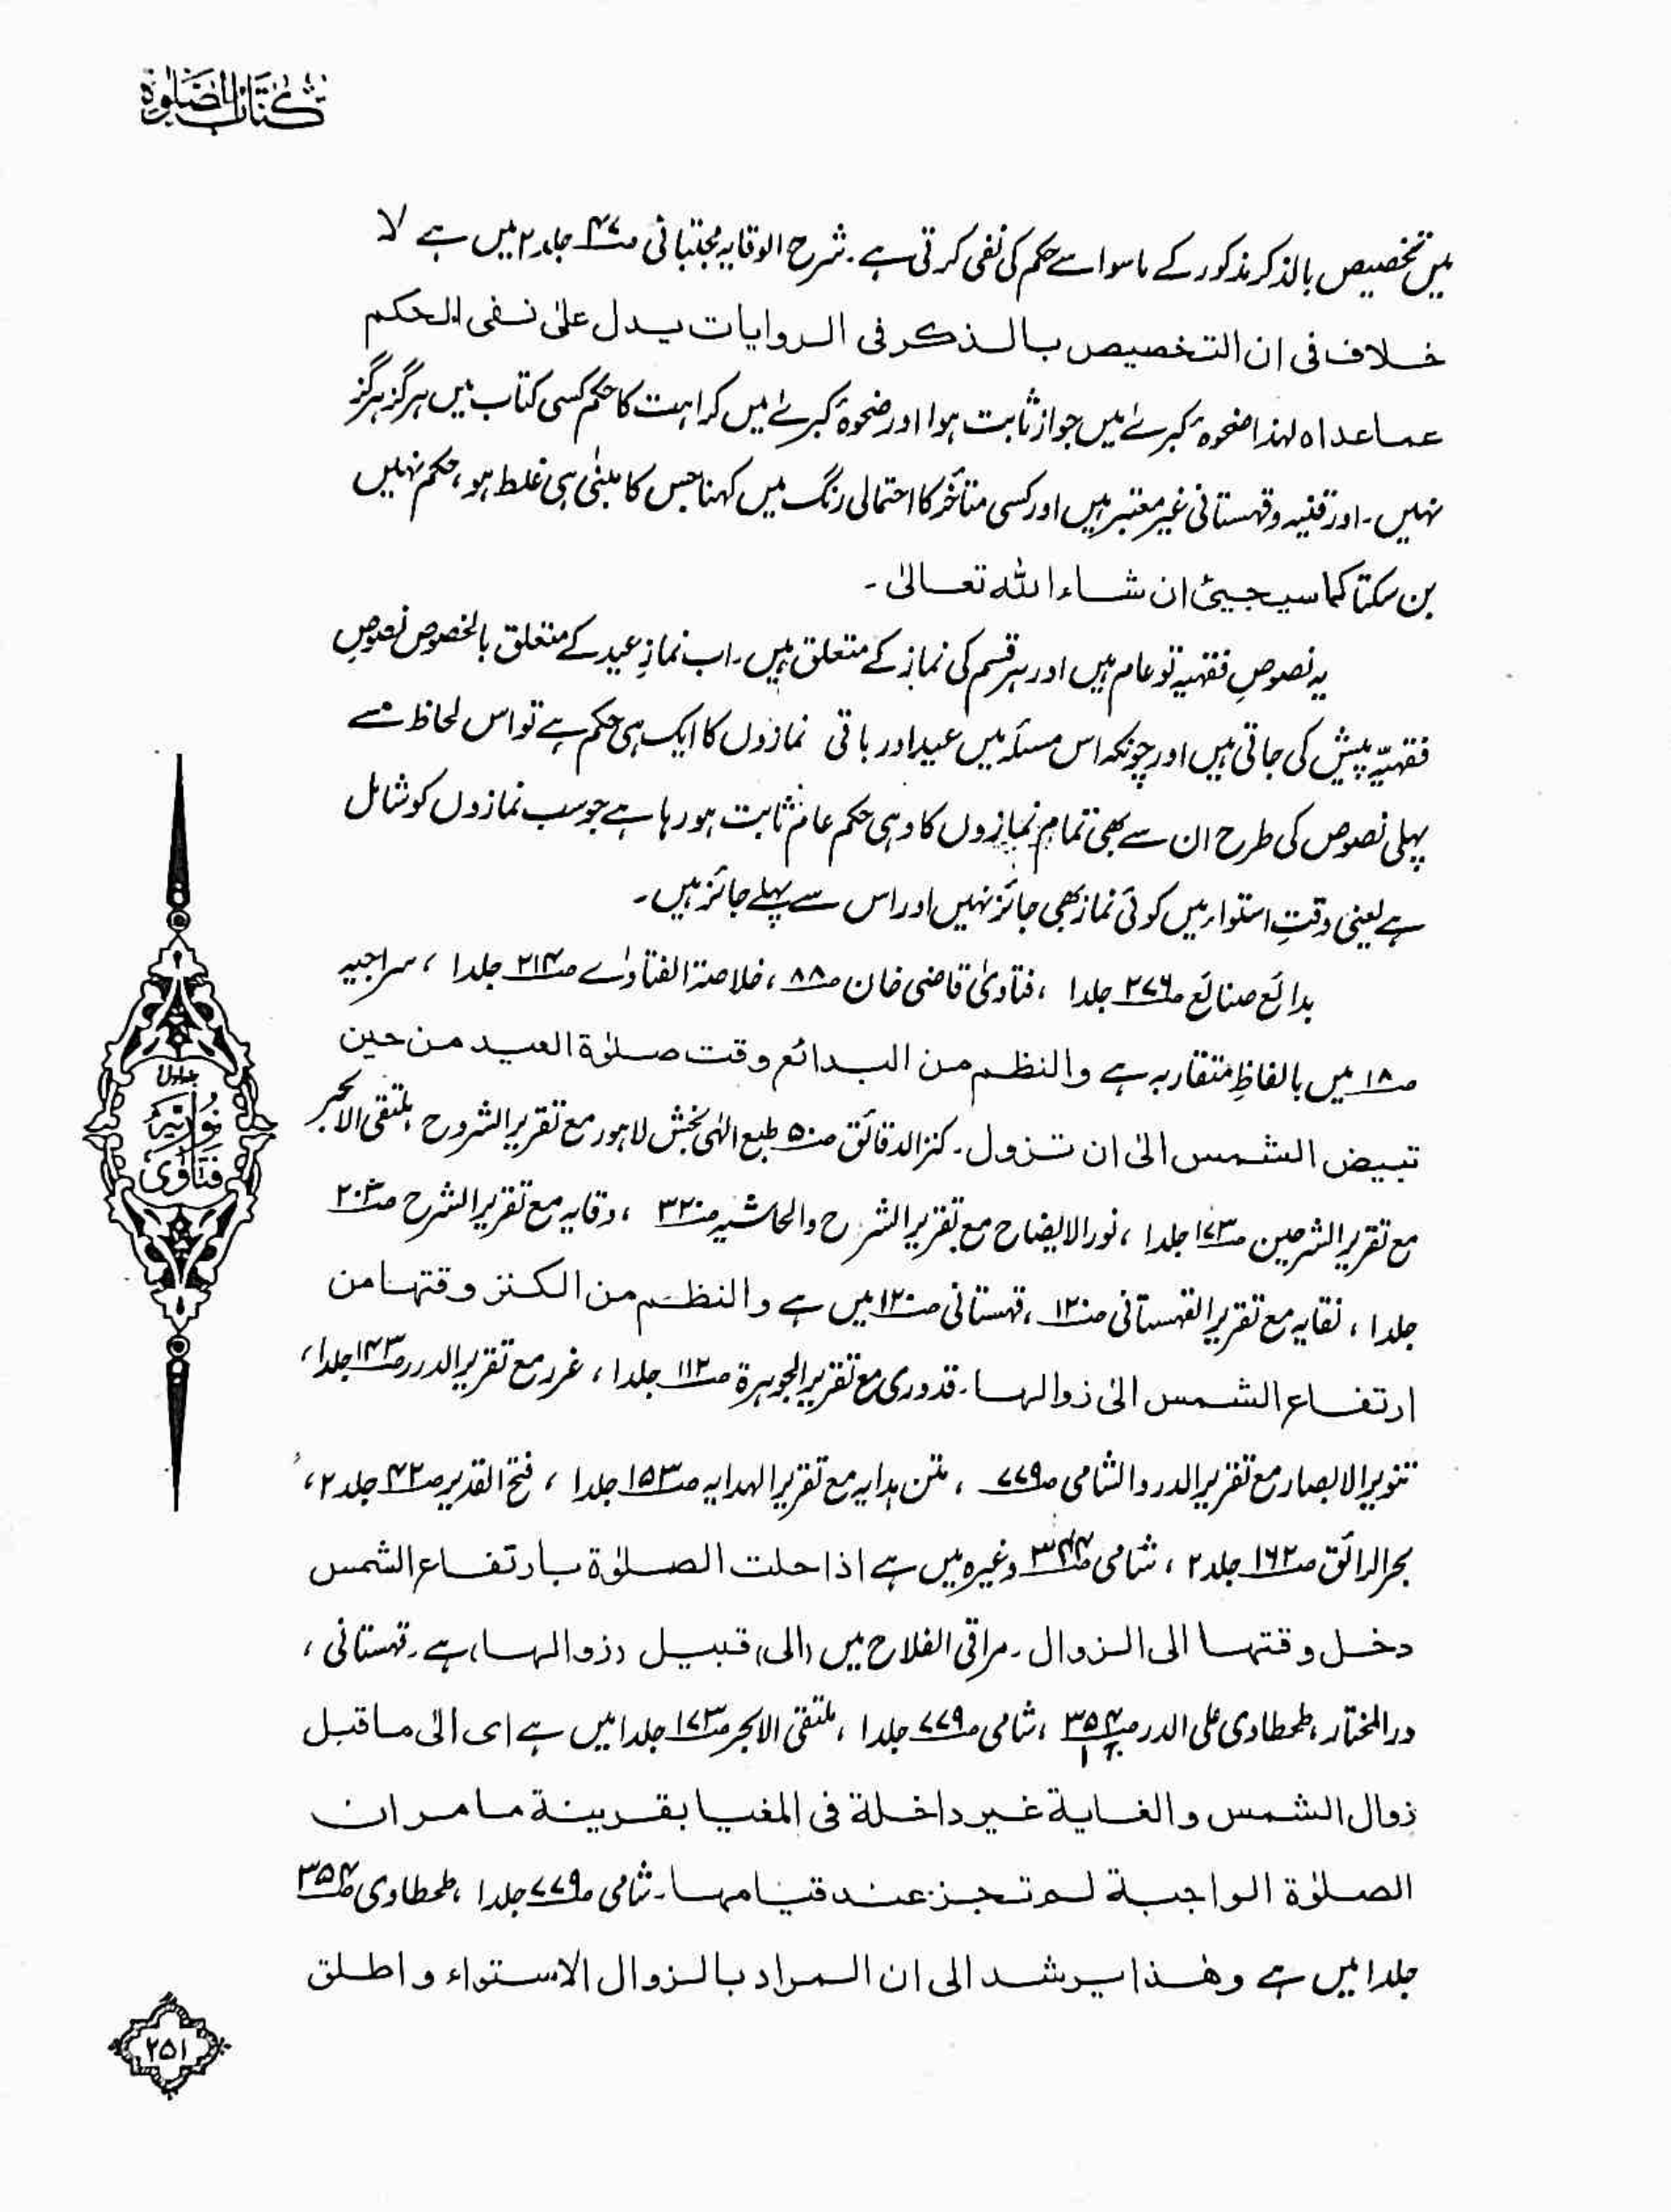 كتاب الصلوة
میں تخصیص بالذکر مذکور کے ماسوا سے حکم کی نفی کرتی ہے۔ شرح الوقایہ مجتبائی ص۴۷ جلد ۲ میں ہے لا
خلاف فی ان التخصیص بالذکر فی الروایات یدل علیٰ نفی الحکم
عماعداه لہٰذا ضحوہٴ کبریٰ میں جواز ثابت ہوا اور ضحوۂ کبریٰ میں کراہت کا حکم کسی کتاب میں ہرگز ہرگز
نہیں۔ اور قنیہ و قہستانی غیر معتبر ہیں اور کسی متأخر کا احتمالی رنگ میں کہنا جس کا مبنیٰ ہی غلط ہو، حکم نہیں
بن سکتا کما سیجیئ ان شاء اللہ تعالیٰ۔
یہ نصوصِ فقہیہ تو عام ہیں اور ہر قسم کی نماز کے متعلق ہیں۔ اب نمازِ عید کے متعلق بالخصوص نصوصِ
فقہیّہ پیش کی جاتی ہیں اور چونکہ اس مسئلہ میں عید اور باقی نمازوں کا ایک ہی حکم ہے تو اس لحاظ سے
پہلی نصوص کی طرح ان سے بھی تمام نمازوں کا وہی حکم عام ثابت ہو رہا ہے جو سب نمازوں کو شامل
ہے یعنی وقتِ استواء میں کوئی نماز بھی جائز نہیں اور اس سے پہلے جائز ہیں۔
بدائع صنائع ص۲۷۶ جلد۱ ، فتاویٰ قاضی خان ص۸۸ ، خلاصۃ الفتاویٰ ص۲۱۴ جلد۱ ، سراجیہ
ص۱۸ میں بالفاظِ متقاربہ ہے والنظم من البدائع وقت صلوٰة العید من حین
تبیض الشمس الیٰ ان تزول۔ کنز الدقائق ص۵۰ طبع الٰہی بخش لاہور مع تقریر الشروح ، ملتقی الابحر
مع تقریر الشرحین ص۱۷۳ جلد۱ ، نور الایضاح مع تقریر الشرح والحاشیہ ص۳۲۰ ، وقایہ مع تقریر الشرح ص۲۰۳
جلد۱ ، نقایہ مع تقریر القہستانی ص۱۲۰ ، قہستانی ص۱۲۰ میں ہے والنظم من الکنز وقتہا من
ارتفاع الشمس الیٰ زوالہا۔ قدوری مع تقریر الجوہرۃ ص۱۱۲ جلد۱ ، غرر مع تقریر الدرر ص۱۴۳ جلد۱ ،
تنویر الابصار مع تقریر الدر والشامی ص۷۷۹ ، متن ہدایہ مع تقریر الہدایہ ص۱۵۳ جلد۱ ، فتح القدیر ص۴۲ جلد ۲ ،
بحر الرائق ص۱۶۲ جلد ۲ ، شامی ص۳۴۴ وغیرہ میں ہے اذا حلت الصلوٰة بارتفاع الشمس
دخل وقتہا الی الزوال۔ مراقی الفلاح میں (الی) قبیل (زوالہا) ہے۔ قہستانی ،
در المختار ، طحطاوی علی الدر ص۳۵۴/۱ ، شامی ص۷۷۹ جلد۱ ، ملتقی الابحر ص۱۷۳ جلد۱ میں ہے ای الیٰ ما قبل
زوال الشمس والغایة غیر داخلة فی المغیا بقرینة ما مر ان
الصلوٰة الواجبة لم تجز عند قیامہا۔ شامی ص۷۷۹ جلد۱ ، طحطاوی ص۳۵۴
جلد۱ میں ہے وھٰذا یرشد الی ان المراد بالزوال الاستواء واطلق
جلداوّل
نُوریَہ
فتاویٰ
۲۵۱